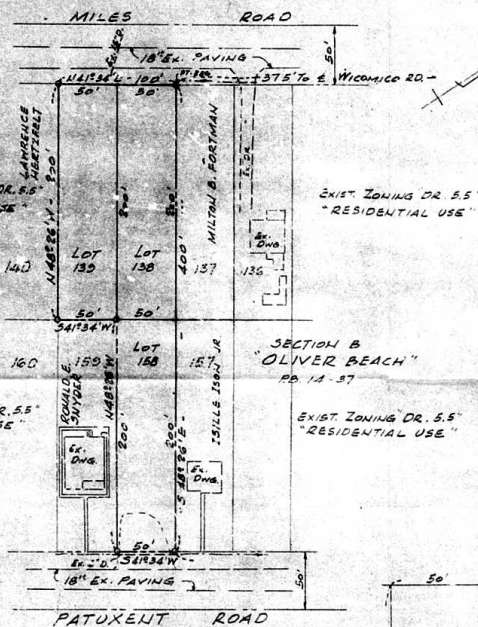 MILES ROAD
18" EX. PAVING
50'
N41°34'E - 100'
50' 50'
375' TO ₵ WICOMICO RD.
LAWRENCE
HERTZFELT
N48°26'W - 200'
200'
400'
MILTON B. FORTMAN
EX. DR.
DR. 5.5"
USE"
EXIST. ZONING DR. 5.5"
"RESIDENTIAL USE"
EX.
DWG.
140
LOT
139
LOT
138
137
136
50' 50'
S41°34'W
SECTION B
"OLIVER BEACH"
P.B. 14-37
160
159
LOT
158
157
RONALD E.
SNYDER
N48°26'W
200'
200'
S 48°26'E -
ISILLE ISON JR.
DR. 5.5"
USE"
EXIST. ZONING DR. 5.5"
"RESIDENTIAL USE"
EX.
DWG.
EX.
DWG.
50'
S41°34'W
18" EX. PAVING
50'
50'
PATUXENT ROAD